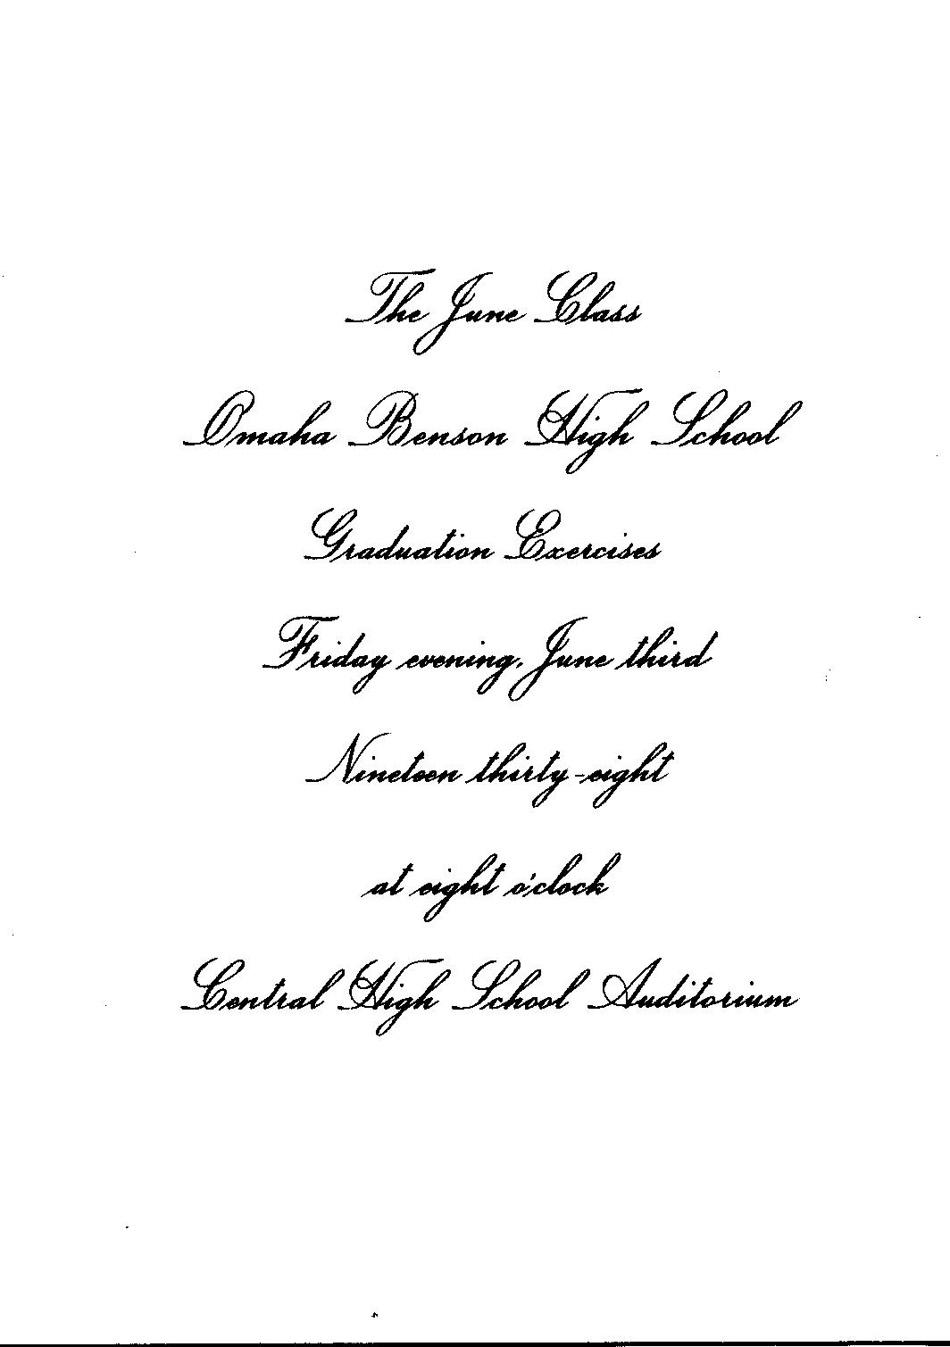 The June Class
Omaha Benson High School
Graduation Exercises
Friday evening, June third
Nineteen thirty-eight
at eight o'clock
Central High School Auditorium